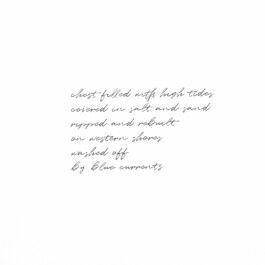 chest filled with high tides
covered in salt and sand
ripped and rebuilt
on western shores
washed off
by blue currents